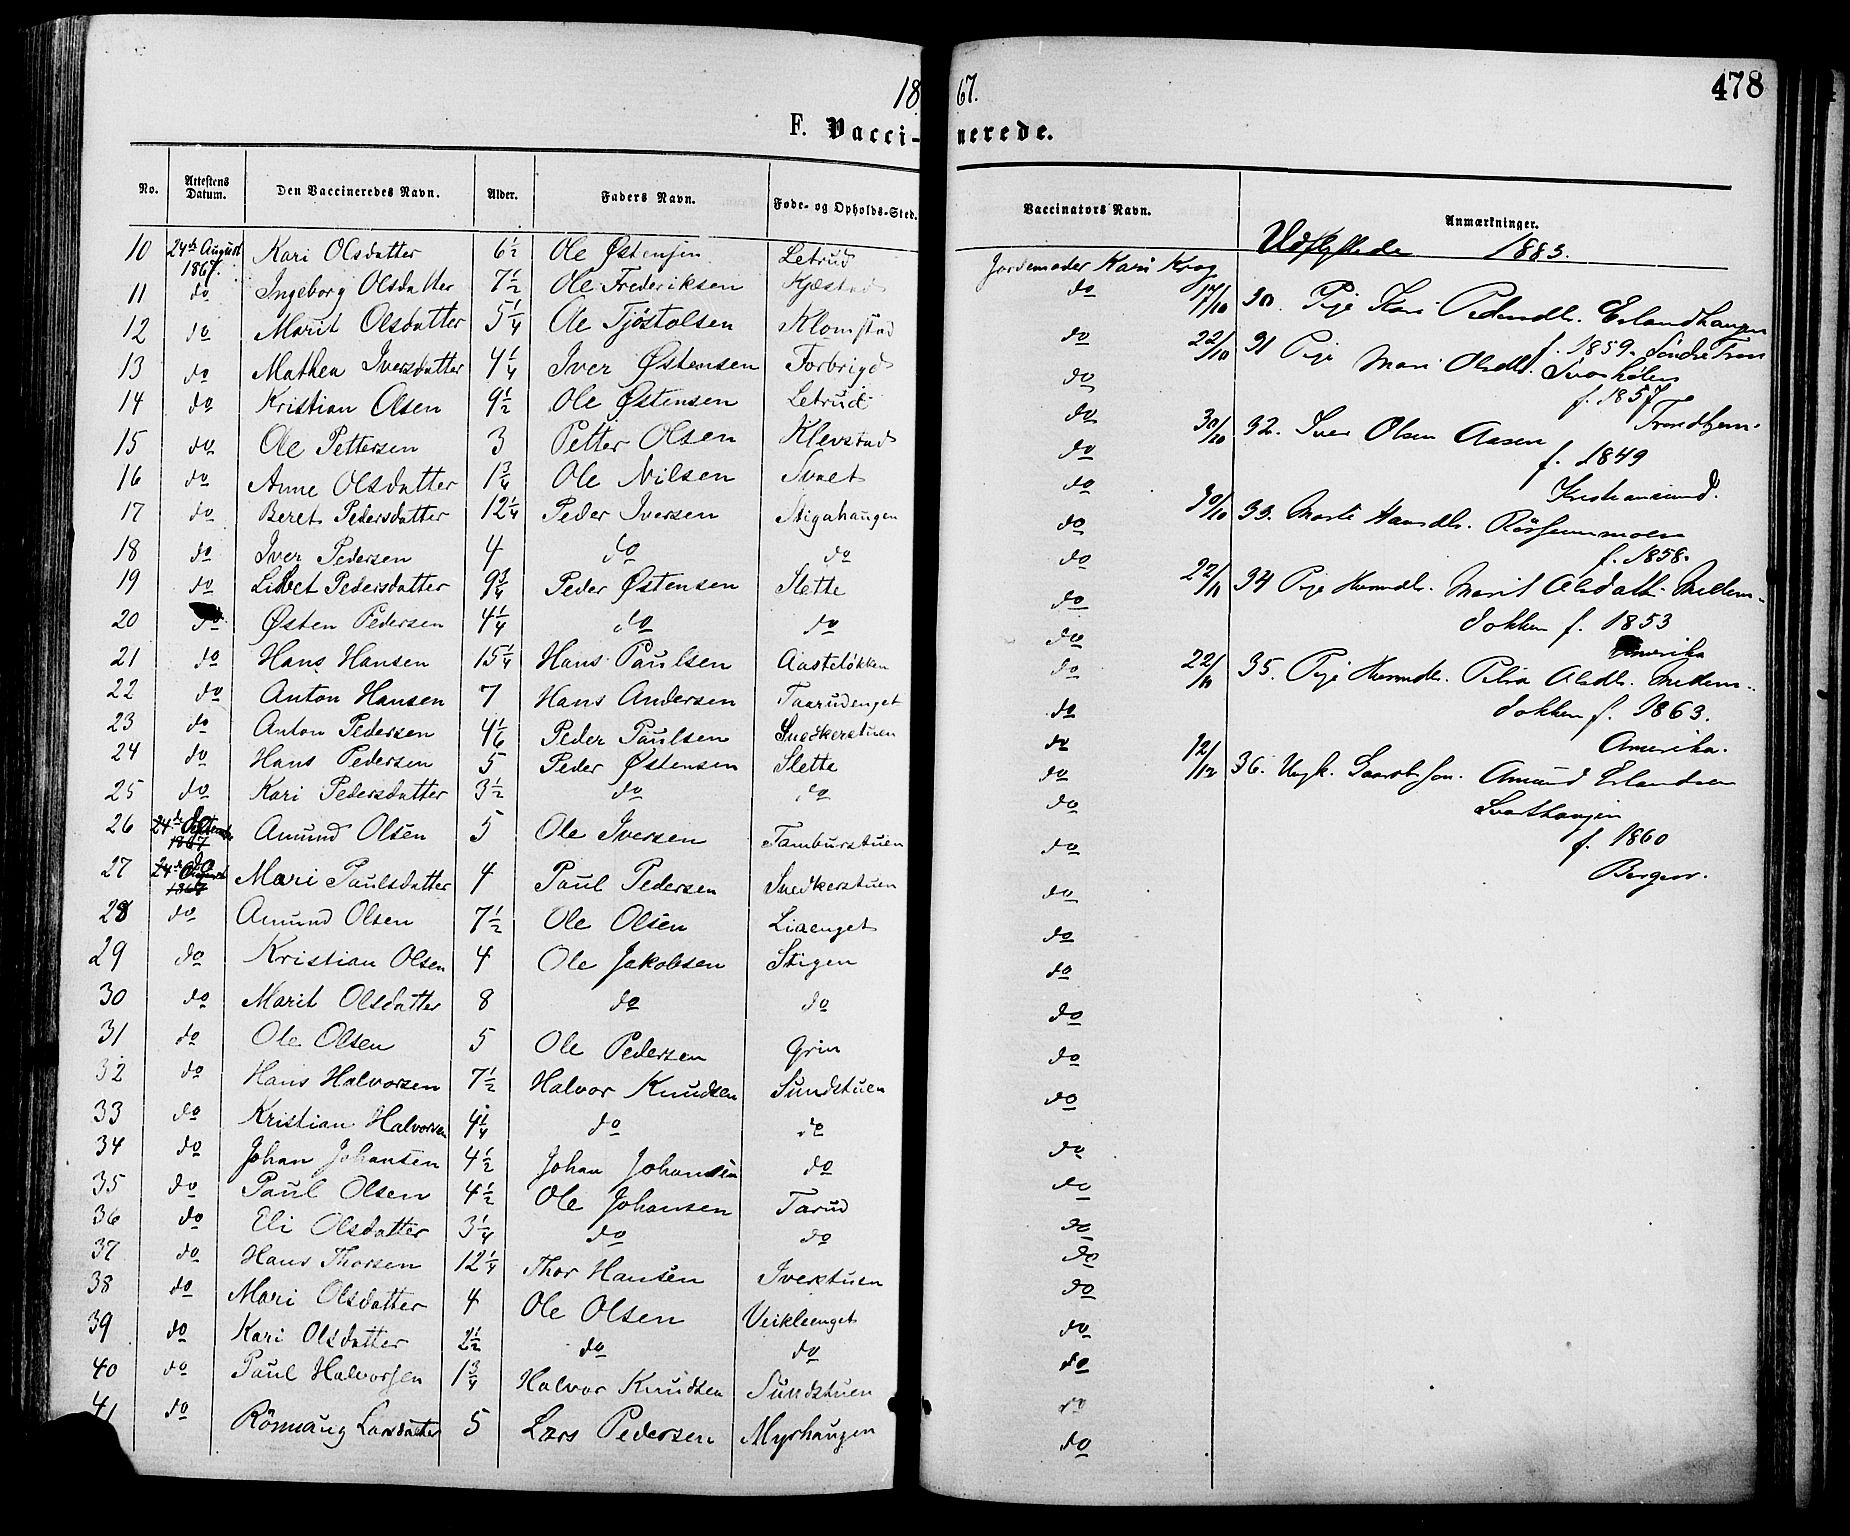 1867.
478
F. Vaccinerede.
No. Attestens Datum. Den Vaccineredes Navn. Alder. Faders Navn. Føde- og Opholds-Sted. Vaccinators Navn. Anmærkninger.
10 24de August 1867. Kari Olsdatter 6½ Ole Østensen Letrud Jordemoder Kari Krog
11 do Ingeborg Olsdatter 7½ Ole Frederiksen Kjæstad do
12 do Marit Olsdatter 5¼ Ole Tjøstolsen Klomstad do
13 do Mathea Iversdatter 4¼ Iver Østensen Forbrigd do
14 do Kristian Olsen 9½ Ole Østensen Letrud do
15 do Ole Pettersen 3 Petter Olsen Klevstad do
16 do Anne Olsdatter 1¾ Ole Nilsen Svaet do
17 do Beret Pedersdatter 12¼ Peder Iversen Stigahaugen do
18 do Iver Pedersen 4 do do do
19 do Lisbet Pedersdatter 9¾ Peder Østensen Slette do
20 do Østen Pedersen 4¼ do do do
21 do Hans Hansen 15¼ Hans Paulsen Aasteløkken do
22 do Anton Hansen 7 Hans Andersen Taarudenget do
23 do Anton Pedersen 4⅙ Peder Paulsen Snedkerstuen do
24 do Hans Pedersen 5 Peder Østensen Slette do
25 do Kari Pedersdatter 3½ do do do
26 do Amund Olsen 5 Ole Iversen Tamburstuen do
27 do Mari Paulsdatter 4 Paul Pedersen Snedkerstuen do
28 do Amund Olsen 7½ Ole Olsen Liaenget do
29 do Kristian Olsen 4 Ole Jakobsen Stigen do
30 do Marit Olsdatter 8 do do do
31 do Ole Olsen 5 Ole Pedersen Grin do
32 do Hans Halvorsen 7½ Halvor Knudsen Sundstuen do
33 do Kristian Halvorsen 4¼ do do do
34 do Johan Johansen 4½ Johan Johansen do do
35 do Paul Olsen 4½ Ole Johansen Tarud do
36 do Eli Olsdatter 3¼ do do do
37 do Hans Thorsen 12¼ Thor Hansen Iverstuen do
38 do Mari Olsdatter 4 Ole Olsen Veikleenget do
39 do Kari Olsdatter 2½ do do do
40 do Paul Halvorsen 1¾ Halvor Knudsen Sundstuen do
41 do Rönnaug Larsdatter 5 Lars Pedersen Myrhaugen do
Udflyttede 1883.
17/10 30. Pige Kari Pedersdtr. Erlandhaugen
f. 1859. Søndre Fron
22/10 31 Pige Mari Olsdtr.
f. 1857
Trondhjem.
30/10 32. Iver Olsen Aasen
f. 1849
Kristiansund.
30/10 33. Marte Hansdtr.
f. 1858.
22/11 34 Pige Marit Olsdatt. Mellem-
dokken f. 1853
Amerika
22/11 35. Pige Olsdtr. Mellem-
dokken f. 1863.
Amerika.
12/12 36. Ungk. Amund Erlandsen
Svarthaugen
f. 1860
Bergen.